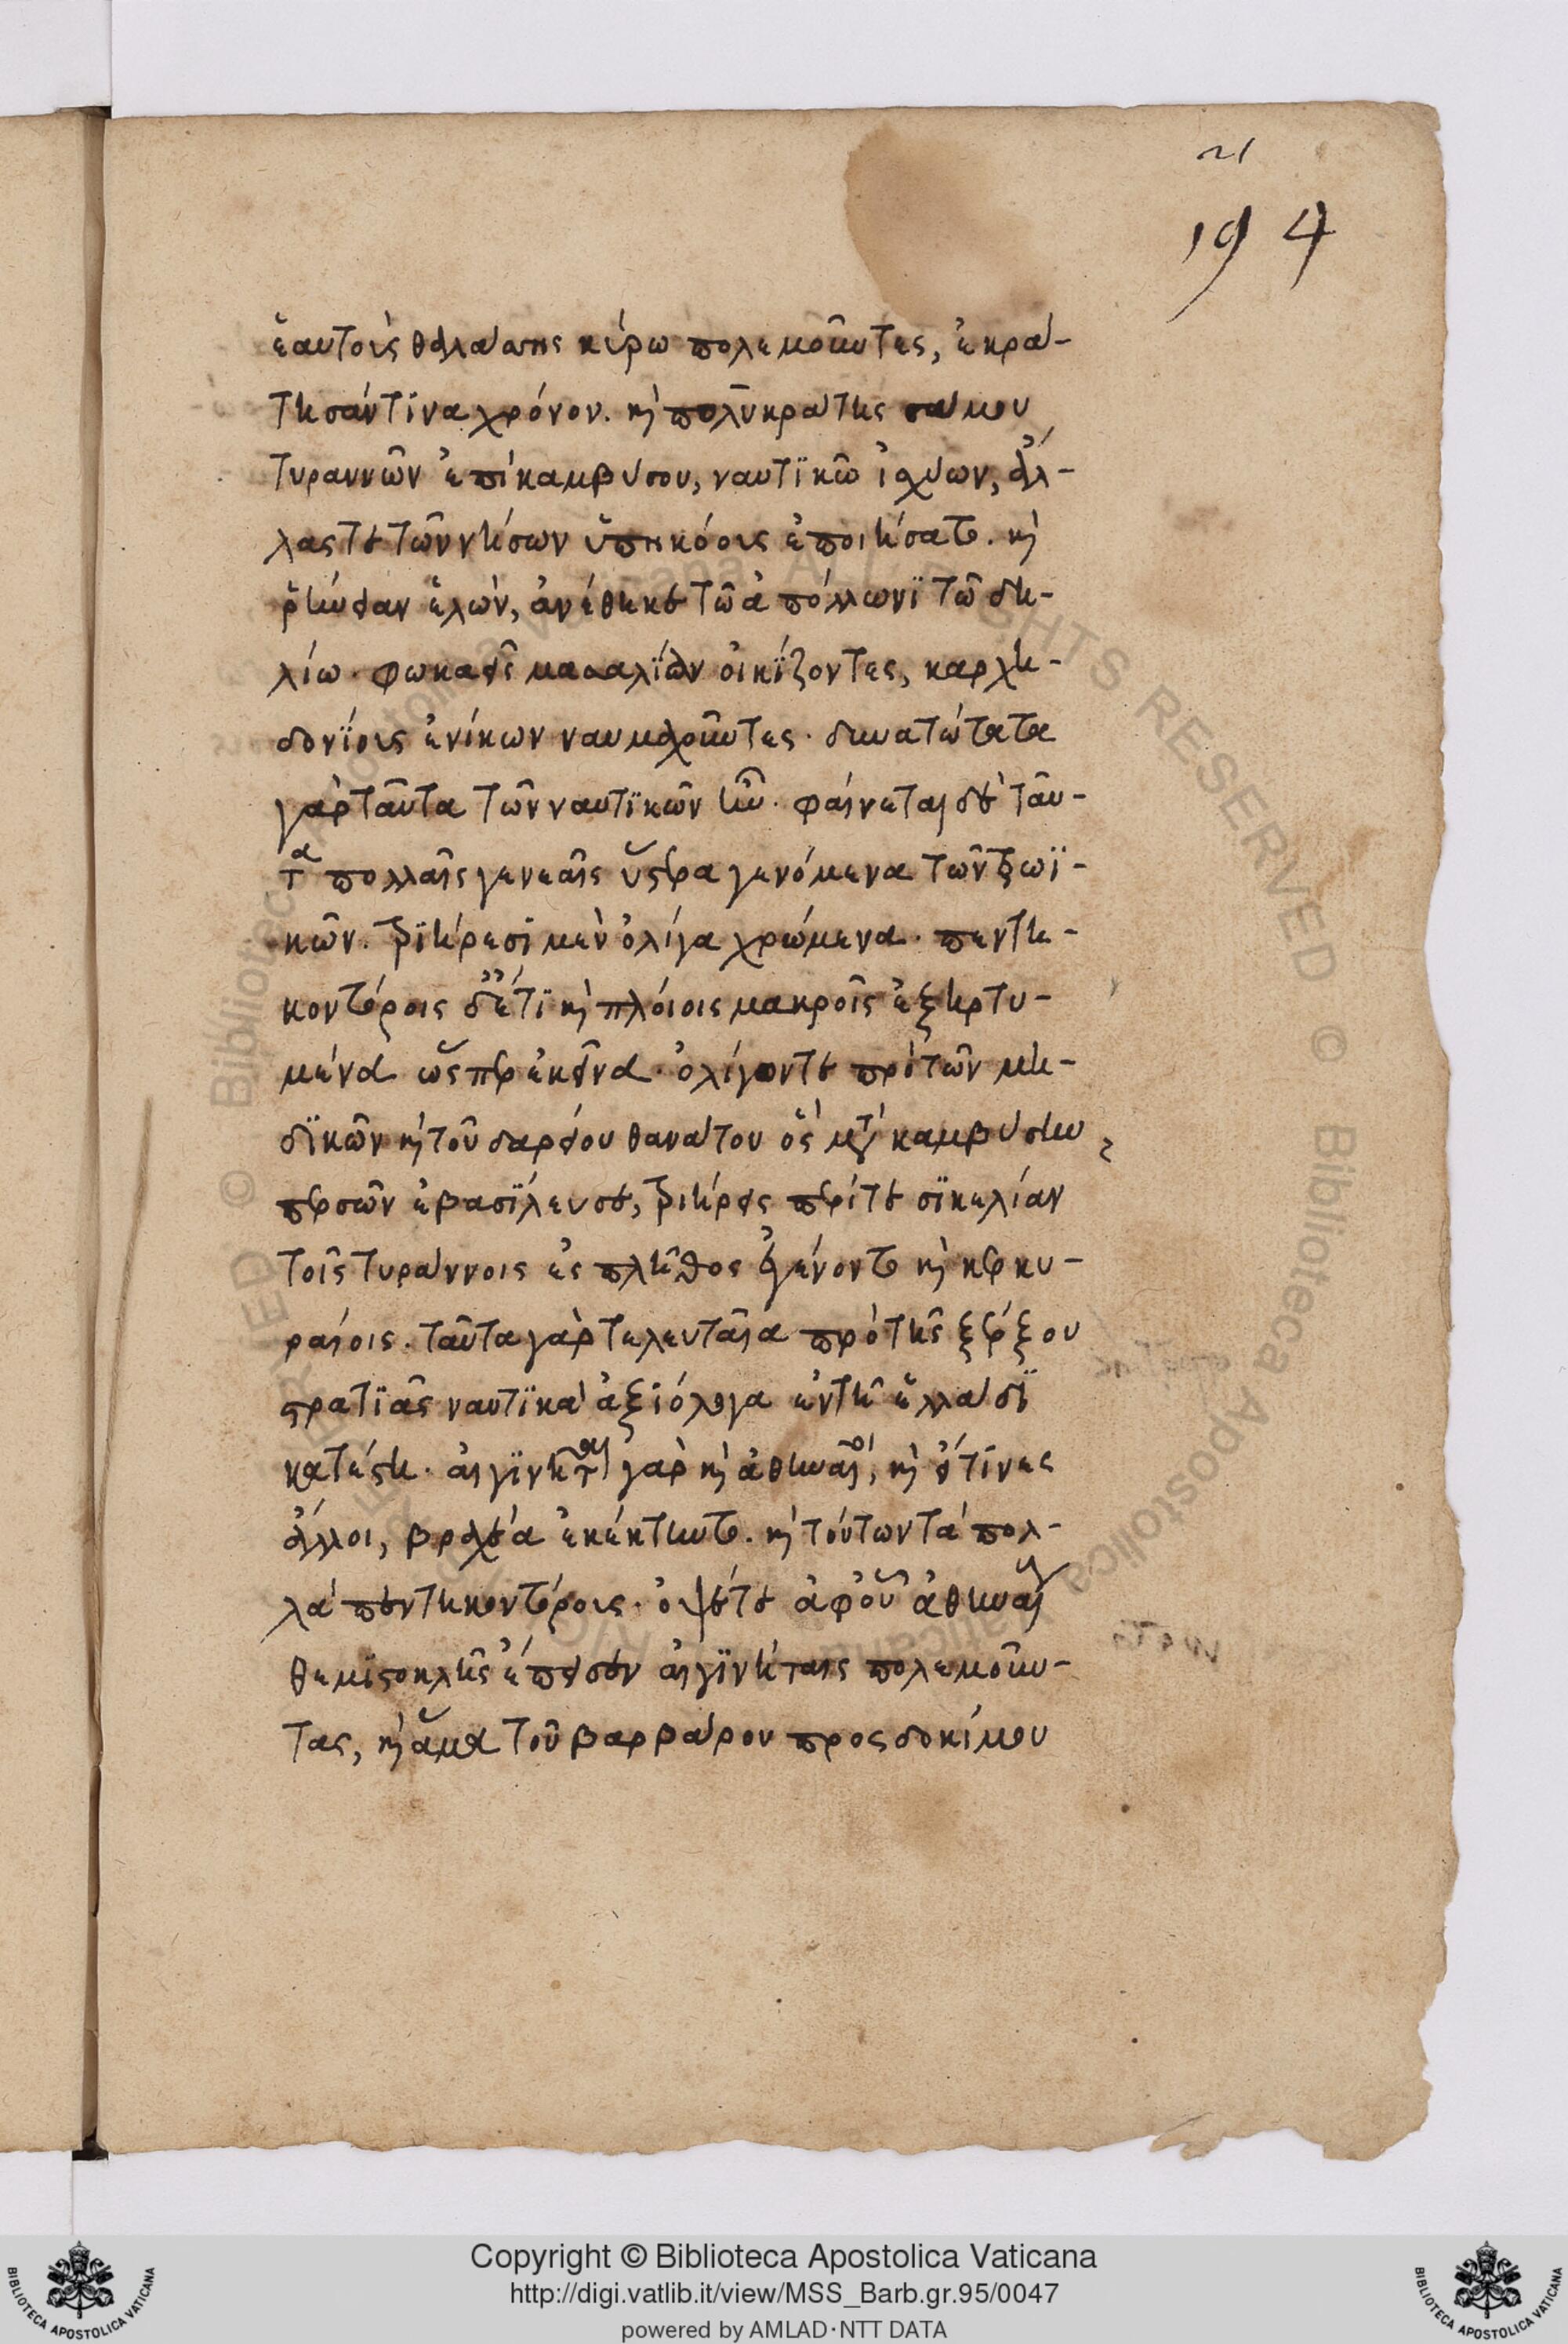 21
194
ἑαυτοὺς θαλάσσης κύρω πολεμοῦντες, ἐκρά-
τησάν τϊνα χρόνον. κὴ πολυκράτης σάμου
τυραννῶν ἐπὶ καμβύσου, ναυτϊκῶ ἰσχύων, ἄλ-
λας τε τῶν νήσων ὑπηκόους ἐποιήσατο. κὴ
ῥήνειαν ἑλὼν, ἀνέθηκε τῶ ἀπόλλωνϊ τῶ δη-
λίω. φωκαεῖς μασσαλϊαν οἰκϊζοντες, καρχη-
δονϊους ἐνίκων ναυμαχοῦντες. δυνατώτατα
γὰρ ταῦτα τῶν ναυτϊκῶν ἦν. φαίνεται δὲ ταῦ-
τα πολλαῖς γενεαῖς ὕστερα γενόμενα τῶν τρωϊ-
κῶν. τριήρεσϊ μὲν ὀλίγα χρώμενα. πεντη-
κοντόροις δ' ἔτϊ κὴ πλοίοις μακροῖς ἐξηρτυ-
μένα ὥσπερ ἐκεῖνα. ὀλίγον τε πρὸ τῶν μη-
δϊκῶν κὴ τοῦ δαρείου θανάτου ὃς μετὰ καμβύσην
περσῶν ἐβασϊλευσε, τριήρεις περί τε σϊκελίαν
τοῖς τυράννοις ἐς πλῆθος ἐγένοντο κὴ κερκυ-
ραίοις. ταῦτα γὰρ τελευταῖα πρὸ τῆς ξέρξου
στρατϊᾶς ναυτϊκὰ ἀξϊόλογα ἐν τῆ ἑλλάδϊ
κατέστη. αἰγϊνῆται γὰρ κὴ ἀθηναῖοι, κὴ εἴ τϊνες
ἄλλοι, βραχέα ἐκέκτηντο. κὴ τούτων τὰ πολ-
λὰ πεντηκοντόρους. ὀψέ τε ἀφ' οὗ ἀθηναίους
θεμϊστοκλῆς ἔπεισεν αἰγϊνήταις πολεμοῦν-
τας, κὴ ἅμα τοῦ βαρβάρου προσδοκίμου
Copyright © Biblioteca Apostolica Vaticana
http://digi.vatlib.it/view/MSS_Barb.gr.95/0047
powered by AMLAD·NTT DATA
BIBLIOTECA APOSTOLICA VATICANA
BIBLIOTECA APOSTOLICA VATICANA